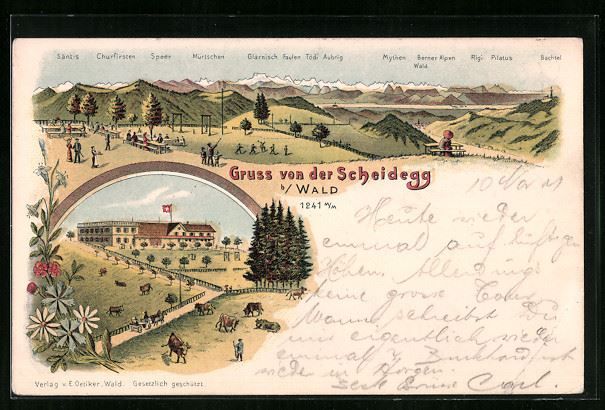 Säntis Churfirsten Speer Mürtschen Glärnisch Faulen Tödi Aubrig Mythen Berner Alpen Rigi Pilatus Bachtel
Wald
Gruss von der Scheidegg
b/ WALD
1241 M/M
10 Nov 01
Heute wieder
einmal auf luftigen
Höhen. Allerdings
keine grosse Tour
Wann schreibst Du
mir eigentlich wieder
einmal
wieder in Horgen.
Verlag v. E. Oetiker, Wald. Gesetzlich geschützt.